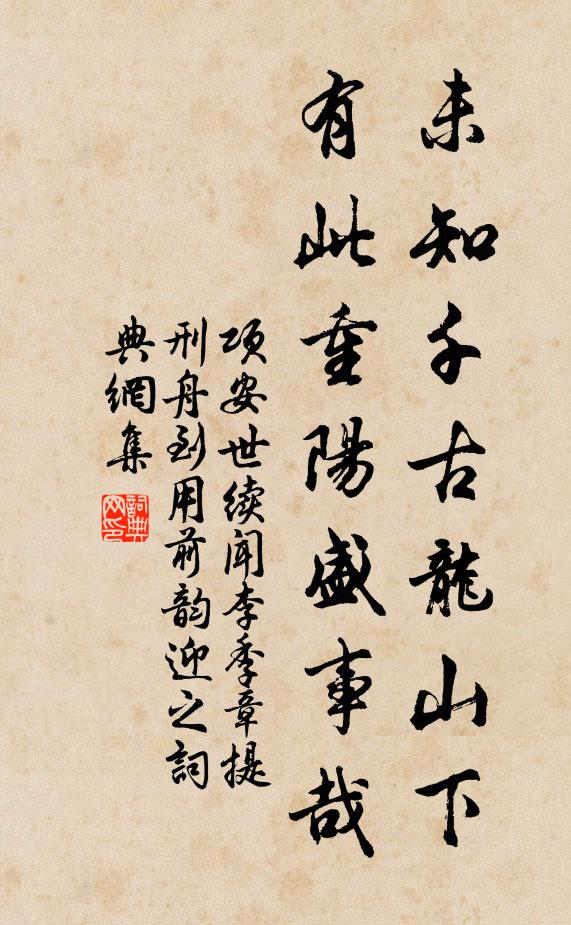 未知千古龍山下
有此重陽盛事哉
项安世续闻李季章提
刑舟到用前韵迎之詞
典網集
詞典
网印